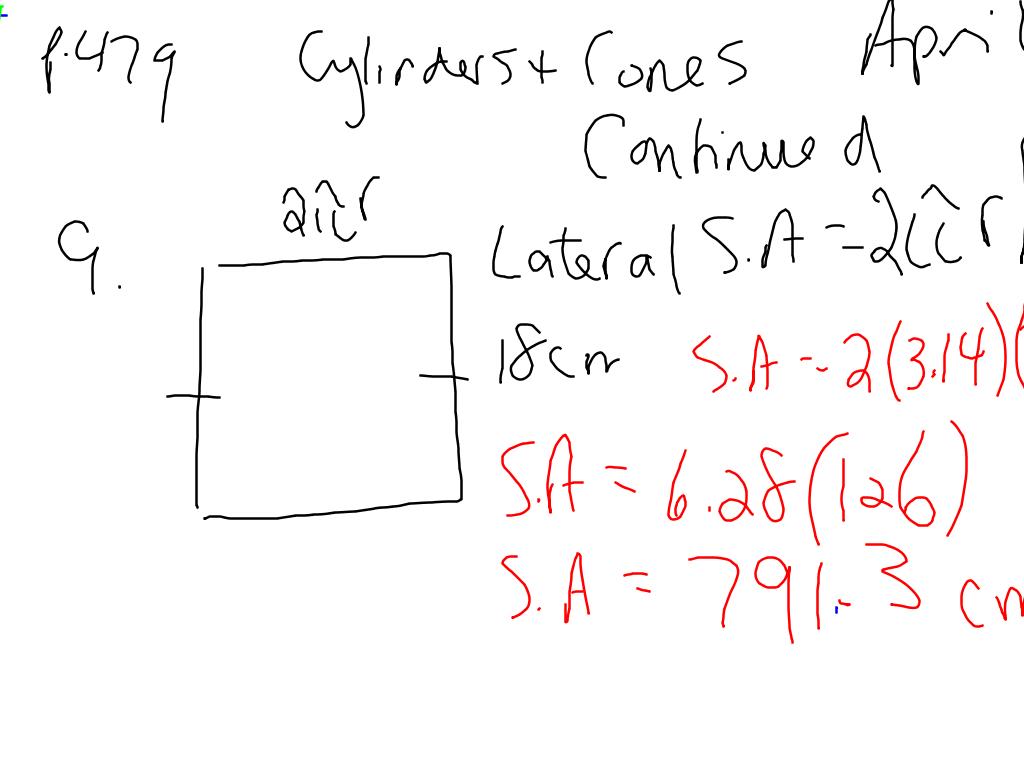 p.479 Cylinders + Cones April
Continued
2πr
9. Lateral S.A = 2πr
18cm S.A = 2(3.14)(
S.A = 6.28(126)
S.A = 791.3 cm